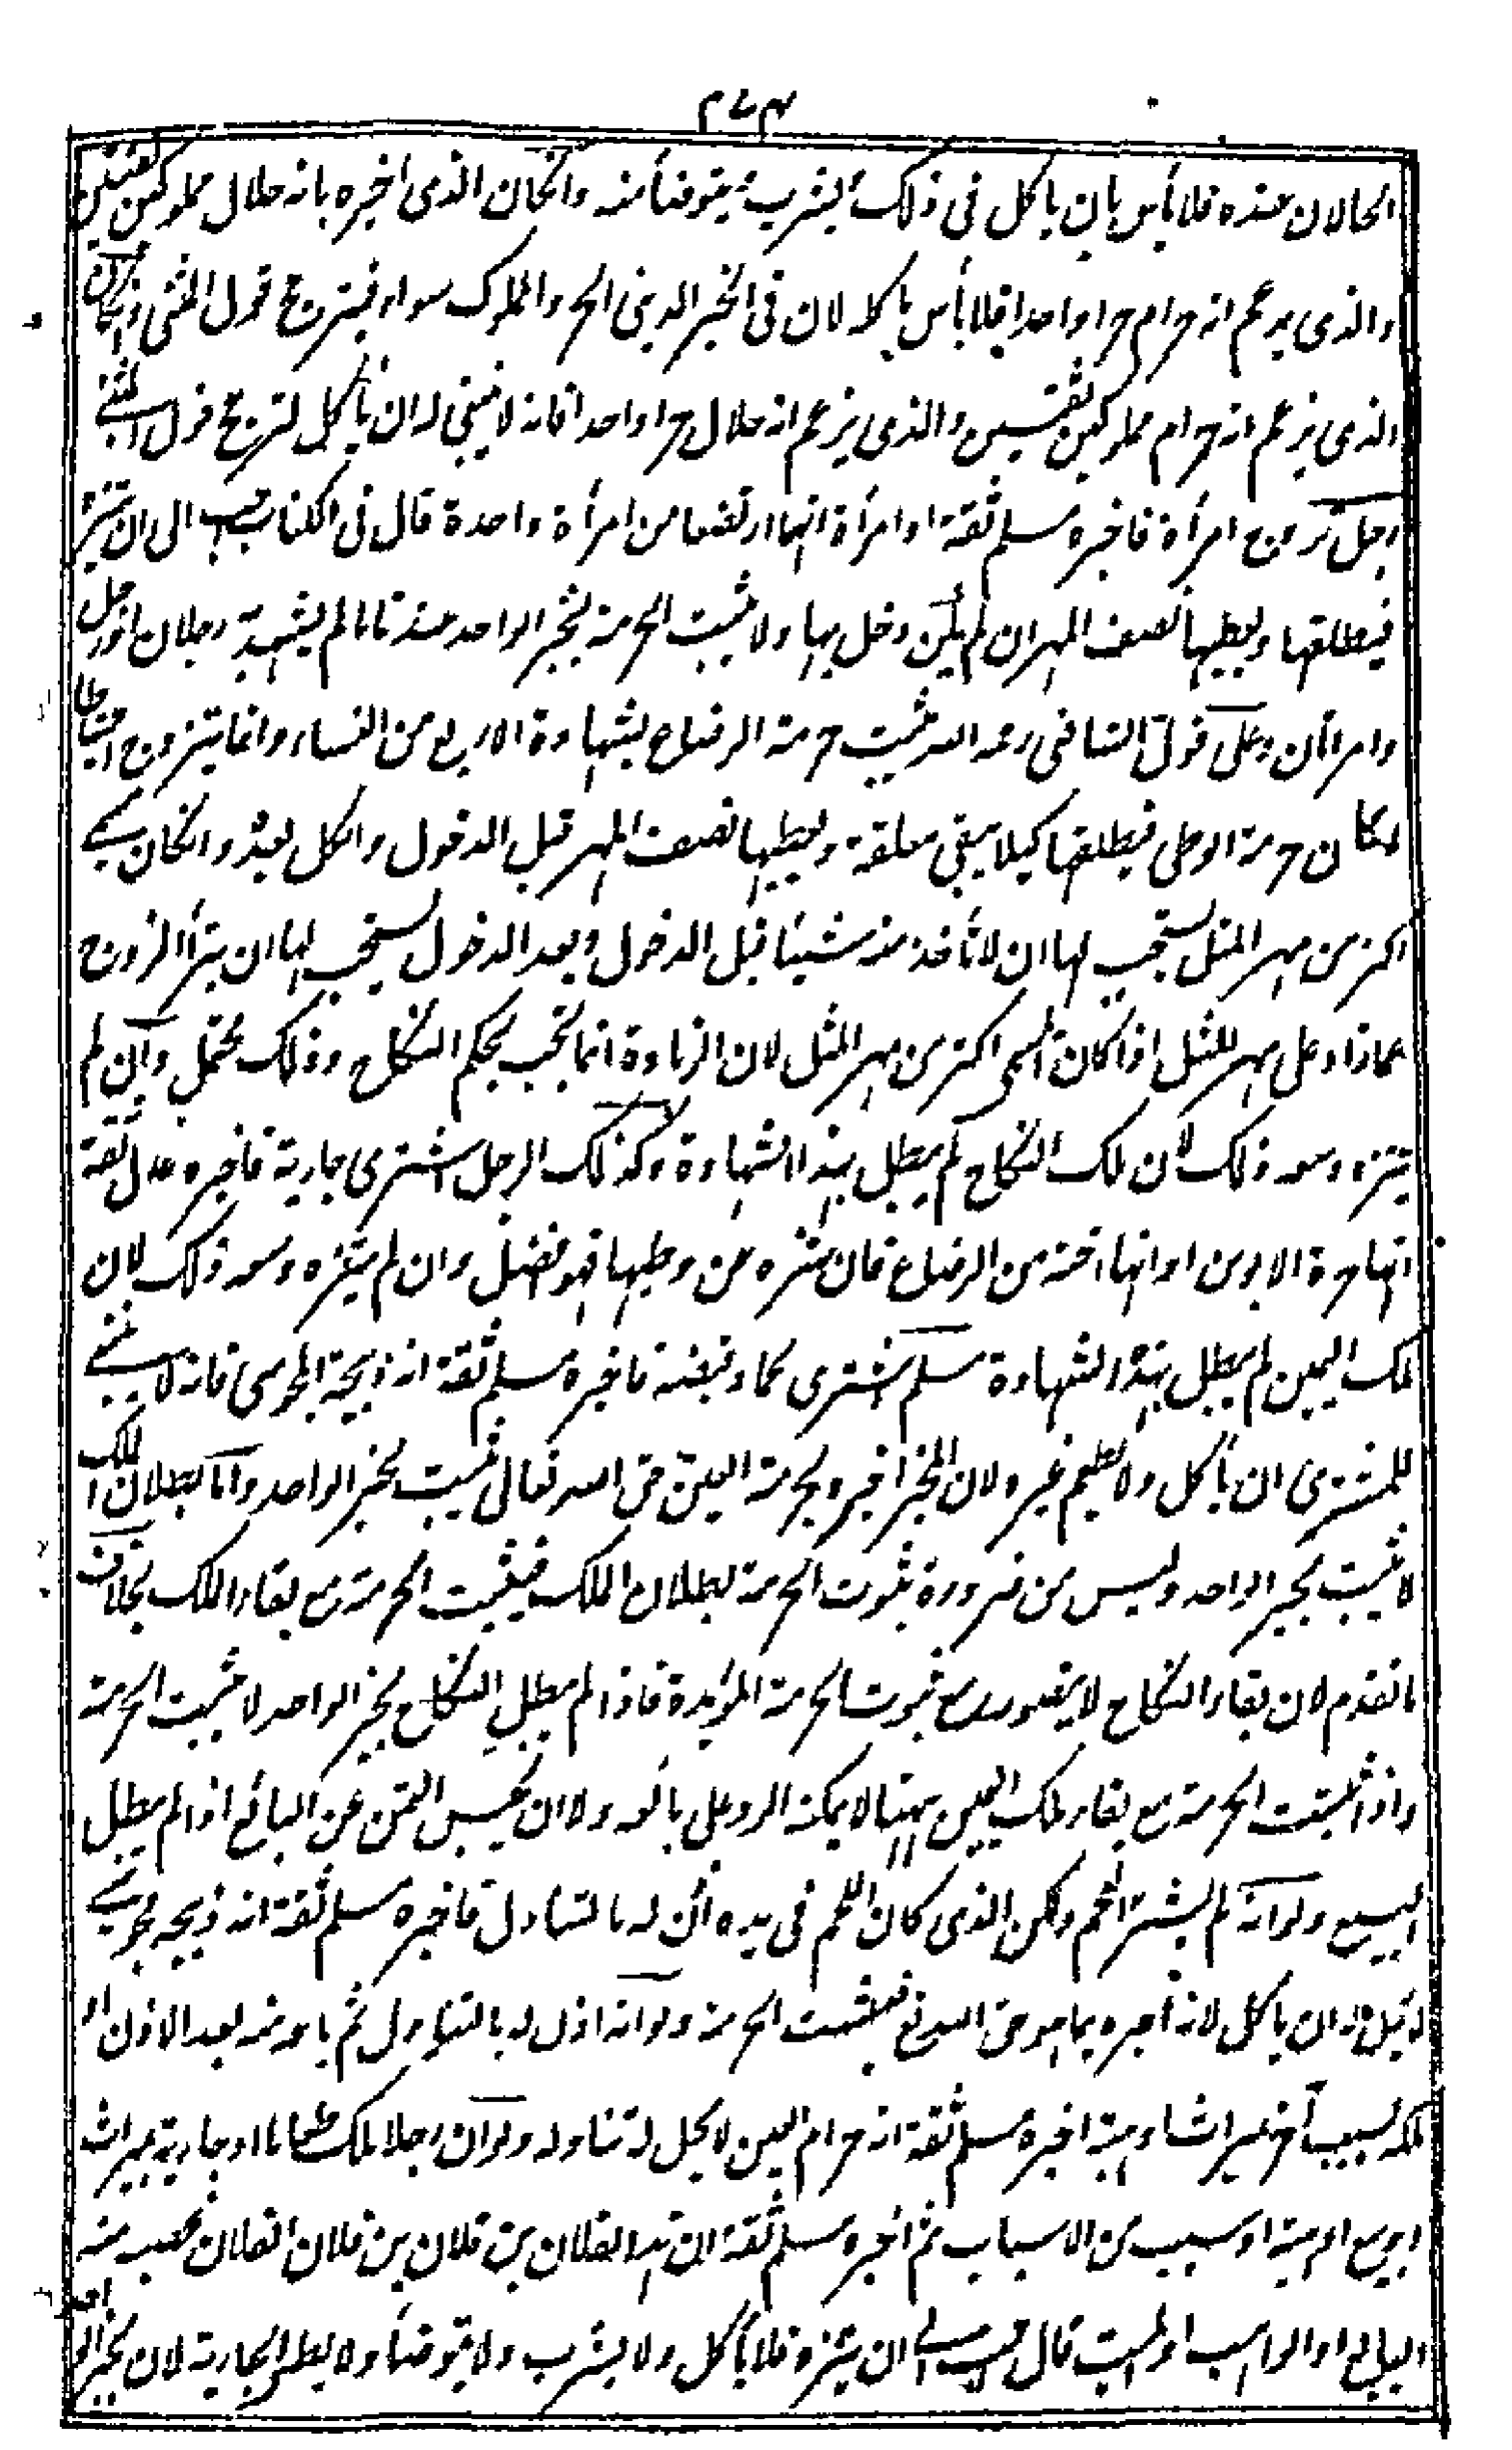 ٢٧٣
الحالان عنده فلا بأس بان يأكل فى ذلك يشرب يتوضأ منه وان كان الذى اخبره بانه حلال مملوكين ثقتين
والذى يزعم انه حرام حرا واحدا فلا بأس باكله لان فى الخبر الدينى الحر والمملوك سواء فيترجح قول المثنى وان كان
الذى يزعم انه حرام مملوكين ثقتين والذى يزعم انه حلال حرا واحدا فانه لا ينبغى له ان يأكل لترجح قول المثنى
رجل تزوج امرأة فاخبره مسلم ثقة او امرأة انهما ارتضعا من امرأة واحدة قال فى الكتاب احب الى ان يتنزه
فيطلقها ويعطيها نصف المهر ان لم يكن دخل بها ولا تثبت الحرمة بخبر الواحد عندنا ما لم يشهد به رجلان او رجل
وامرأتان وعلى قول الشافى رحمه الله تثبت حرمة الرضاع بشهادة الاربع من النساء وانما يتنزوج احتياطا
لمكان حرمة الوطى فيطلقها كيلا يبقى معلقة ويعطيها نصف المهر قبل الدخول والكل بعده وان كان سمى
اكثر من مهر المثل يستحب لها ان لا تأخذ منه شيئا قبل الدخول وبعد الدخول يستحب لها ان يبرأ الزوج
عما زاد على مهر المثل اذا كان المسمى اكثر من مهر المثل لان الزيادة انما تجب بحكم النكاح وذلك محتمل وان لم
يتنزه وسعه ذلك لان ملك النكاح لم يبطل بهذا الشهادة وكذلك الرجل اشترى جارية فاخبره عدل ثقة
انها حرة الابوين او انها اخته من الرضاع فان تنزه عن وطيها فهو افضل وان لم يتنزه وسعه ذلك لان
ملك اليمين لم يبطل بهذه الشهادة مسلم اشترى لحما وقبضه فاخبره مسلم ثقة انه ذبيحة المجوسى فانه لا ينبغى
للمشترى ان يأكل ولا يطعم غيره لان المخبر اخبره بحرمة العين حق الله تعالى تثبت بخبر الواحد واما بطلان الملك
لا تثبت بخبر الواحد وليس من ضرورة ثبوت الحرمة بطلان الملك فيثبت الحرمة مع بقاء الملك بخلاف
ما تقدم لان بقاء النكاح لا يتصور مع ثبوت الحرمة المؤبدة فاذا لم يبطل النكاح بخبر الواحد لا تثبت الحرمة
واذا ثبتت الحرمة مع بقاء ملك اليمين ههنا لا يمكنه الرد على بائعه ولا ان يحبس الثمن عن البائع اذا لم يبطل
البيع ولو انه لم يشتر اللحم ولكن الذى كان اللحم فى يده اذن له بالتناول فاخبره مسلم ثقة انه ذبيحة مجوسى
لا يحل له ان يأكل لانه اخبره بما هو حق الله تع فيثبت الحرمة ولو انه اذن له بالتناول ثم باعه منه بعد الاذن او
ملكه بسبب آخر ميراث او هبة اخبره مسلم ثقة انه حرام العين لا يحل له تناوله ولو ان رجلا ملك طعاما او جارية بميراث
او بيع او هبة او سبب من الاسباب ثم اخبره مسلم ثقة ان هذا لفلان بن فلان بن فلان الفلان غصب منه
البايع او الواهب او الميت قال احب الى ان يتنزه فلا يأكل ولا يشرب ولا يتوضأ ولا يطأ الجارية لان بخبر الواحد